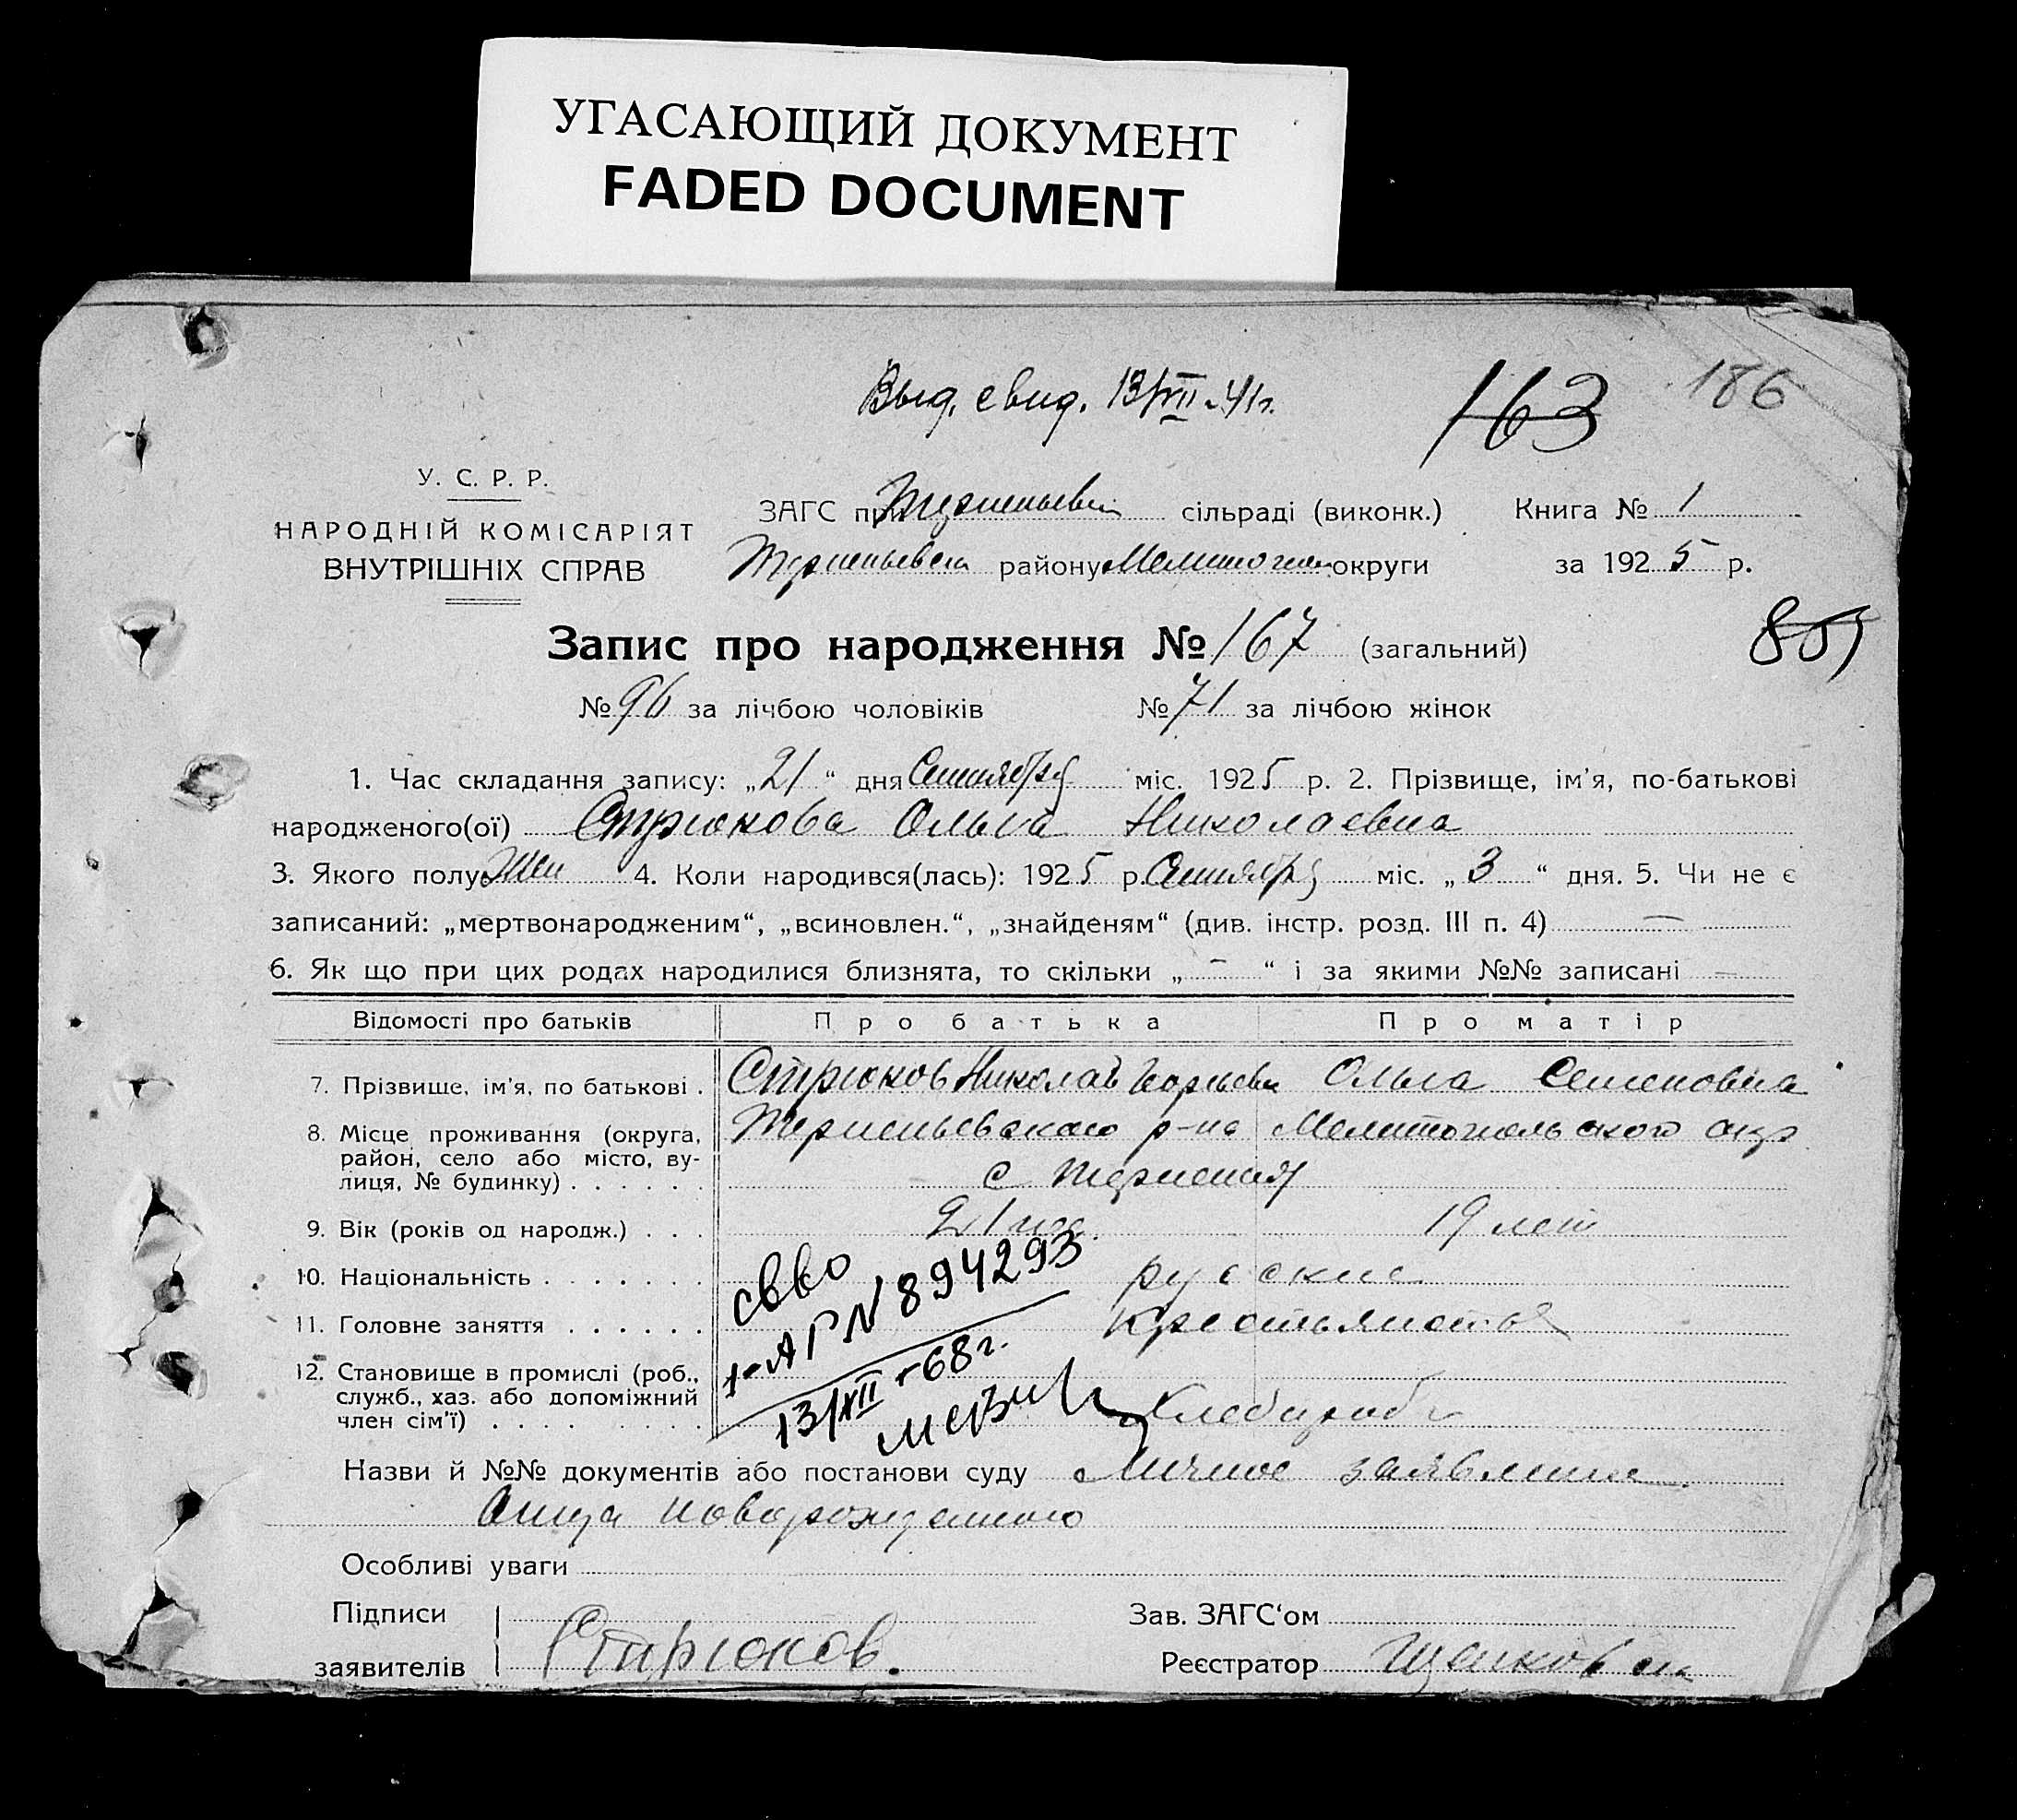 УГАСАЮЩИЙ ДОКУМЕНТ
FADED DOCUMENT
Выд. свид. 13/VII-41г.
163
186
У. С. Р. Р.
НАРОДНІЙ КОМІСАРІЯТ
ВНУТРІШНІХ СПРАВ
ЗАГС при сільраді (виконк.) Книга № 1
району округи за 1925 р.
Запис про народження № 167 (загальний)
№ 96 за лічбою чоловіків № 71 за лічбою жінок
1. Час складання запису: „21“ дня Сентября міс. 1925 р. 2. Прізвище, ім'я, по-батькові
народженого(ої) Стрюкова Ольга Николаевна
3. Якого полу Жен 4. Коли народився(лась): 1925 р. Сентября міс. „3“ дня. 5. Чи не є
записаний: „мертвонародженим“, „всиновлен.“, „знайденям“ (див. інстр. розд. III п. 4) —
6. Як що при цих родах народилися близнята, то скільки „ – “ і за якими №№ записані —
Відомості про батьків Про батька Про матір
7. Прізвище, ім'я, по батькові . Стрюков Николай Ольга Семеновна
8. Місце проживання (округа, район, село або місто, ву-лиця, № будинку) . . . . . . Терпеньевского р-на Мелитопольского окр
с Терпения
9. Вік (років од народж.) . . . 21 19 лет
10. Національність . . . . . . . русские
11. Головне заняття . . . . . . крестьянство
12. Становище в промислі (роб., служб., хаз. або допоміжний член сім'ї) . . . . . . . Хлебороб
1-АР N 894293
13/XII-68г.
Назви й №№ документів або постанови суду Личное заявление
Отца новорожденного
Особливі уваги
Підписи
заявителів Стрюков.
Зав. ЗАГС‘ом
Реєстратор